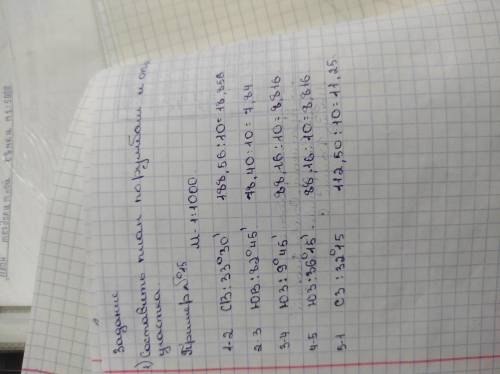 Задание
1) Составить план по румбам и оп,
участка
Пример №15
М-1:1000
1-2 СВ: 33°30' 188,56:10=18,858
2-3 ЮВ: 82°45' 78,40:10=7,84
3-4 ЮЗ: 9°45' 88,16:10=8,816
4-5 ЮЗ: 36°15' 86,16:10=8,616
5-1 СЗ: 32°15 112,50:10=11,25